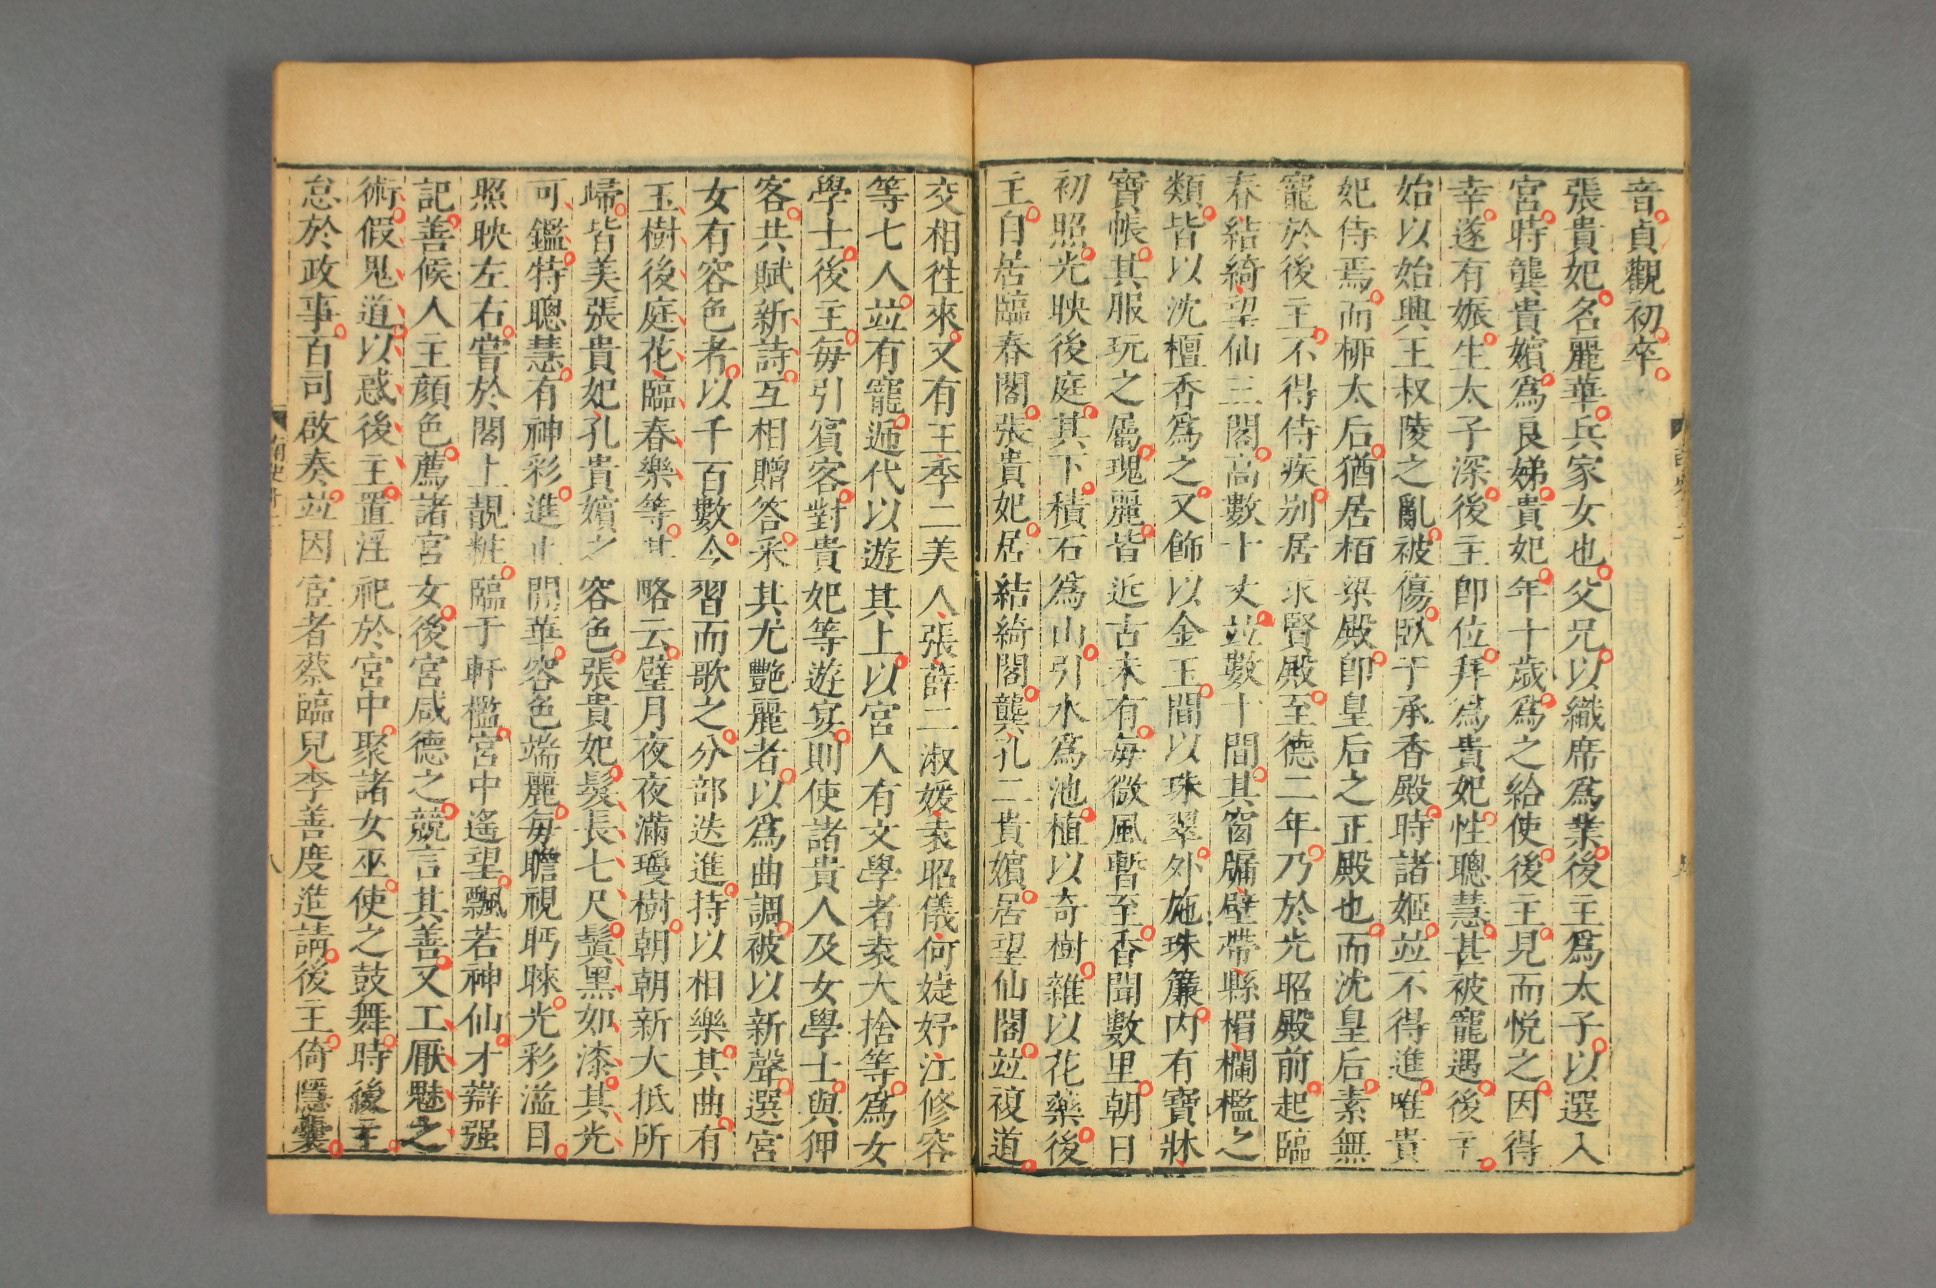 音貞觀初卒
張貴妃名麗華兵家女也父兄以織席爲業後主爲太子以選入
宮時龔貴嬪爲良娣貴妃年十歲爲之給使後主見而悅之因得
幸遂有娠生太子深後主卽位拜爲貴妃性聰慧甚被寵遇後主
始以始興王叔陵之亂被傷臥于承香殿時諸姬竝不得進唯貴
妃侍焉而柳太后猶居栢梁殿卽皇后之正殿也而沈皇后素無
寵於後主不得侍疾別居求賢殿至德二年乃於光昭殿前起臨
春結綺望仙三閣高數十丈竝數十間其窗牖壁帶縣楣欄檻之
類皆以沈檀香爲之又飾以金玉間以珠翠外施珠簾內有寶牀
寶帳其服玩之屬瑰麗皆近古未有每微風暫至香聞數里朝日
初照光映後庭其下積石爲山引水爲池植以奇樹雜以花藥後
主自居臨春閣張貴妃居結綺閣龔孔二貴嬪居望仙閣竝複道
交相往來又有王季二美人張薛二淑媛袁昭儀何婕妤江修容
等七人竝有寵遞代以遊其上以宮人有文學者袁大捨等爲女
學士後主每引賓客對貴妃等遊宴則使諸貴人及女學士與狎
客共賦新詩互相贈答采其尤艷麗者以爲曲調被以新聲選宮
女有容色者以千百數令習而歌之分部迭進持以相樂其曲有
玉樹後庭花臨春樂等其略云璧月夜夜滿瓊樹朝朝新大抵所
歸皆美張貴妃孔貴嬪之容色張貴妃髮長七尺鬒黑如漆其光
可鑑特聰慧有神彩進止閒華容色端麗每瞻視眄睞光彩溢目
照映左右嘗於閣上靚粧臨于軒檻宮中遙望飄若神仙才辯强
記善候人主顏色薦諸宮女後宮咸德之競言其善又工厭魅之
術假鬼道以惑後主置淫祀於宮中聚諸女巫使之鼓舞時後主
怠於政事百司啟奏竝因宦者蔡臨兒李善度進請後主倚隱囊
南史卅二
八